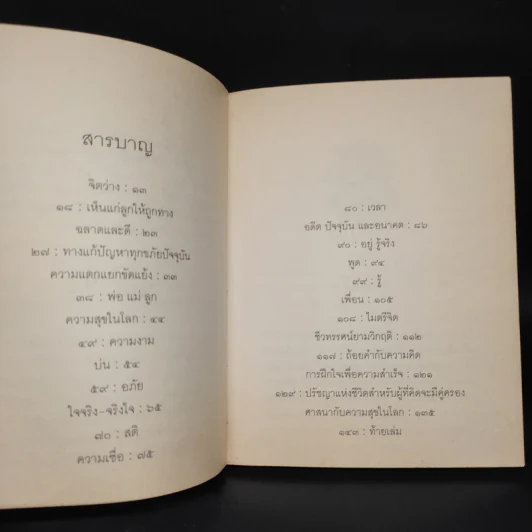 สารบาญ
จิตว่าง : ๑๓
๑๘ : เห็นแก่ลูกให้ถูกทาง
ฉลาดและดี : ๒๓
๒๗ : ทางแก้ปัญหาทุกขภัยปัจจุบัน
ความแตกแยกขัดแย้ง : ๓๓
๓๘ : พ่อ แม่ ลูก
ความสุขในโลก : ๔๔
๔๙ : ความงาม
บ่น : ๕๔
๕๙ : อภัย
ใจจริง-จริงใจ : ๖๕
๗๐ : สติ
ความเชื่อ : ๗๕
๘๐ : เวลา
อดีต ปัจจุบัน และอนาคต : ๘๖
๙๐ : อยู่ รู้จริง
พูด : ๙๔
๙๙ : รู้
เพื่อน : ๑๐๕
๑๐๘ : ไมตรีจิต
ชีวทรรศน์ยามวิกฤติ : ๑๑๒
๑๑๘ : ถ้อยคำกับความคิด
การฝึกใจเพื่อความสำเร็จ : ๑๒๑
๑๒๙ : ปรัชญาแห่งชีวิตสำหรับผู้ที่คิดจะมีคู่ครอง
ศาสนากับความสุขในโลก : ๑๓๕
๑๔๓ : ท้ายเล่ม